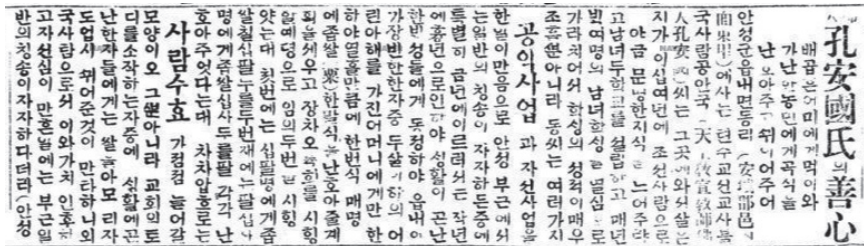 孔安國氏의善心
배곱흔어미에게먹이와
가난한농민에게곡식을
난호아주고쉬어주어
안성군읍내면동리(安城郡邑
內面東里)에사는텬주교선교사불
국사람공안국(天主敎宣敎師佛
人孔安國)씨는그곳에와서살은
지가이십여년에조선사람으로
야금문명한지식을느어주랴
고남녀두학교를설립하고매년
빅여명의남녀학생을열심으로
가라치어서학생의성적이매우
조흘뿐아니라동씨는여러가지
공익사업과자선사업을
한일이만음으로안성부근에서
는일반의칭송이자자하든중에
특별히금년에이르러서는작년
에흉년으로인하야생활이곤난
한빈성들에게동정하야읍내에
가장빈한한자중두살이하의어
린아해를가진어머니에게만한
하야열흘만큼에한번식매명
에좁쌀(粟)한말식을난호아줄게
획을세우고장차오륙회를시행
일예뎡으로임의두번을시행
얏는대첫번에는십팔명에게좁
쌀칠십팔두를두번재에는팔십사
명에게좁쌀십사두를팔각각난
호아주엇다는대차차압흐로는
사람수효가점점늘어갈
모양이오그뿐아니라교회의토
디를소작하는자중에생활에곤
난한자들에게는쌀을아모리자
도업시쉬어준것이만타하니외
국사람으로서이와가치인호한
고자선심이만흔일에는부근일
반의칭송이자자하다더라(안성